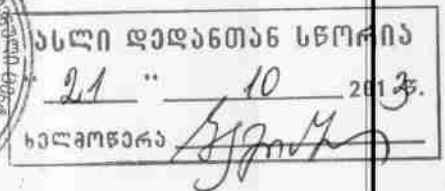 ასლი დედანთან სწორია
" 21 " 10 2013წ.
ხელმოწერა